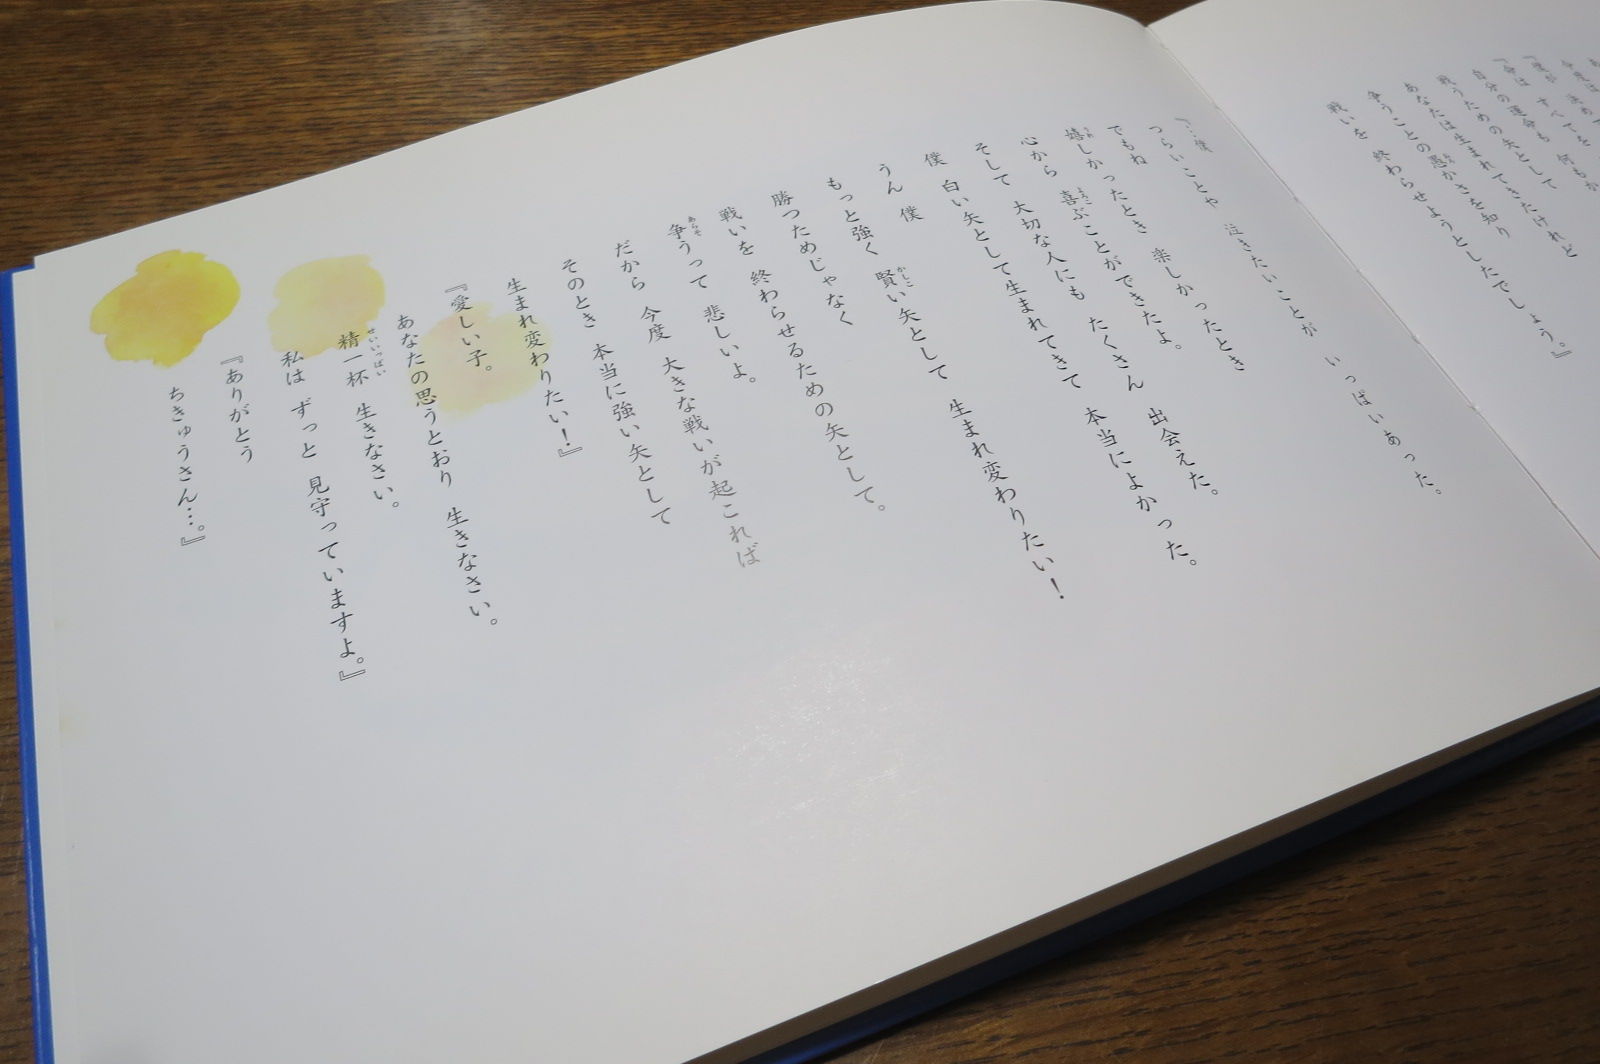 自分の運命も 何もか
戦うための矢として
あなたは生まれてきたけれど
争うことの愚かさを知り
戦いを 終わらせようとしたでしょう。』
『…僕
つらいことや 泣きたいことが いっぱいあった。
でもね
嬉しかったとき 楽しかったとき
心から 喜ぶことができたよ。
そして 大切な人にも たくさん 出会えた。
僕 白い矢として生まれてきて 本当によかった。
うん 僕
もっと強く 賢い矢として 生まれ変わりたい！
勝つためじゃなく
戦いを 終わらせるための矢として。
争うって 悲しいよ。
だから 今度 大きな戦いが起これば
そのとき 本当に強い矢として
生まれ変わりたい！』
『愛しい子。
あなたの思うとおり 生きなさい。
精一杯 生きなさい。
私は ずっと 見守っていますよ。』
『ありがとう
ちきゅうさん…。』